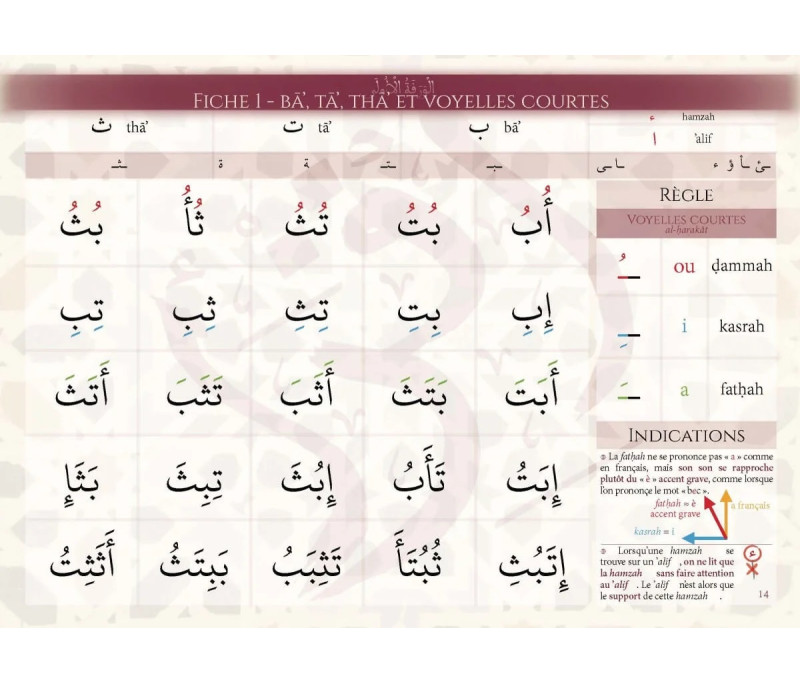 الْوَرَقَةُ الْأُولَى
FICHE 1 - BĀ’, TĀ’, THĀ’ ET VOYELLES COURTES
ء hamzah
ا ’alif
ب bā’
ت tā’
ث thā’
ـئ ـأ ـؤ ء
ـا ـى
ـبـ
ـتـ
ـة
ة
ـثـ
أُبُ بُتُ تُثُ ثُأُ بُثُ
إِبِ بِتِ تِثِ ثِبِ تِبِ
أَبتَ بَتَثَ أَثَبَ تَثَبَ أَتَثَ
إِبَتُ تَأَبُ إِبُثَ تِبِثَ بَثَإِ
إِتَبُثِ ثُبُتَأَ تَثِبَبُ بَبِتَثُ أَثَثِتُ
RÈGLE
VOYELLES COURTES
al-ḥarakāt
ـُ ou ḍammah
ـِ i kasrah
ـَ a fatḥah
INDICATIONS
La fatḥah ne se prononce pas « a » comme
en français, mais son son se rapproche
plutôt du « è » accent grave, comme lorsque
l’on prononce le mot « bec ».
fatḥah ≈ è
accent grave
a français
kasrah = i
Lorsqu’une hamzah se
trouve sur un ’alif , on ne lit que
la hamzah sans faire attention
au ’alif . Le ’alif n’est alors que
le support de cette hamzah .
14